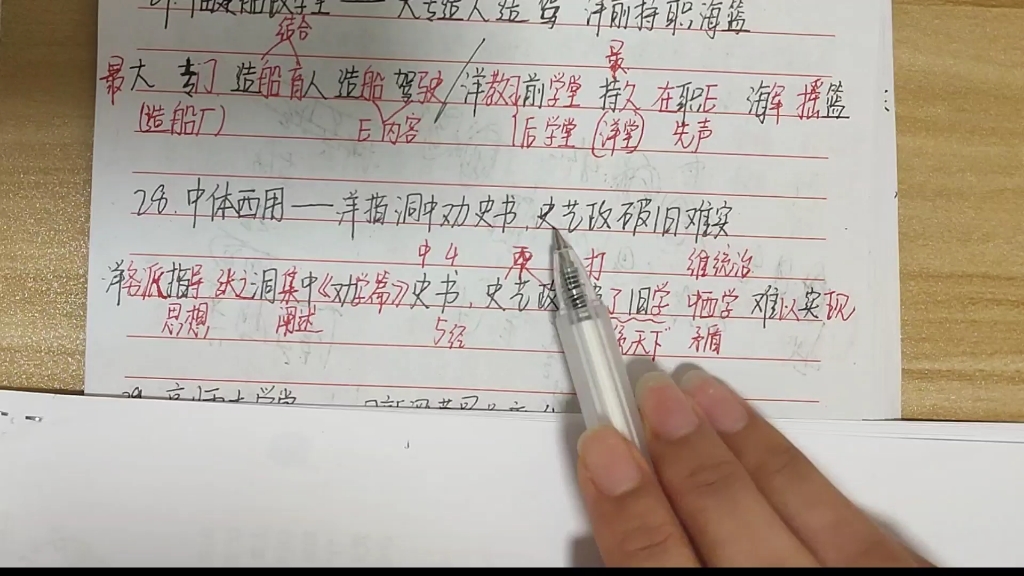 大专造人造驾 洋前持职海篮
结合
最
最大 专门 造船育人 造船 驾驶/洋教习前学堂 持久 在职E 海军摇篮
(造船厂) E内容 后学堂 (洋堂) 先声
28.中体西用——洋指洞中劝史书,史艺政破旧难实
中4 西 打 维统治
洋务派指导 张之洞集中《劝学篇》史书,史艺政 了旧学 中西学 难以实现
思想 阐述 5经 天下 矛盾